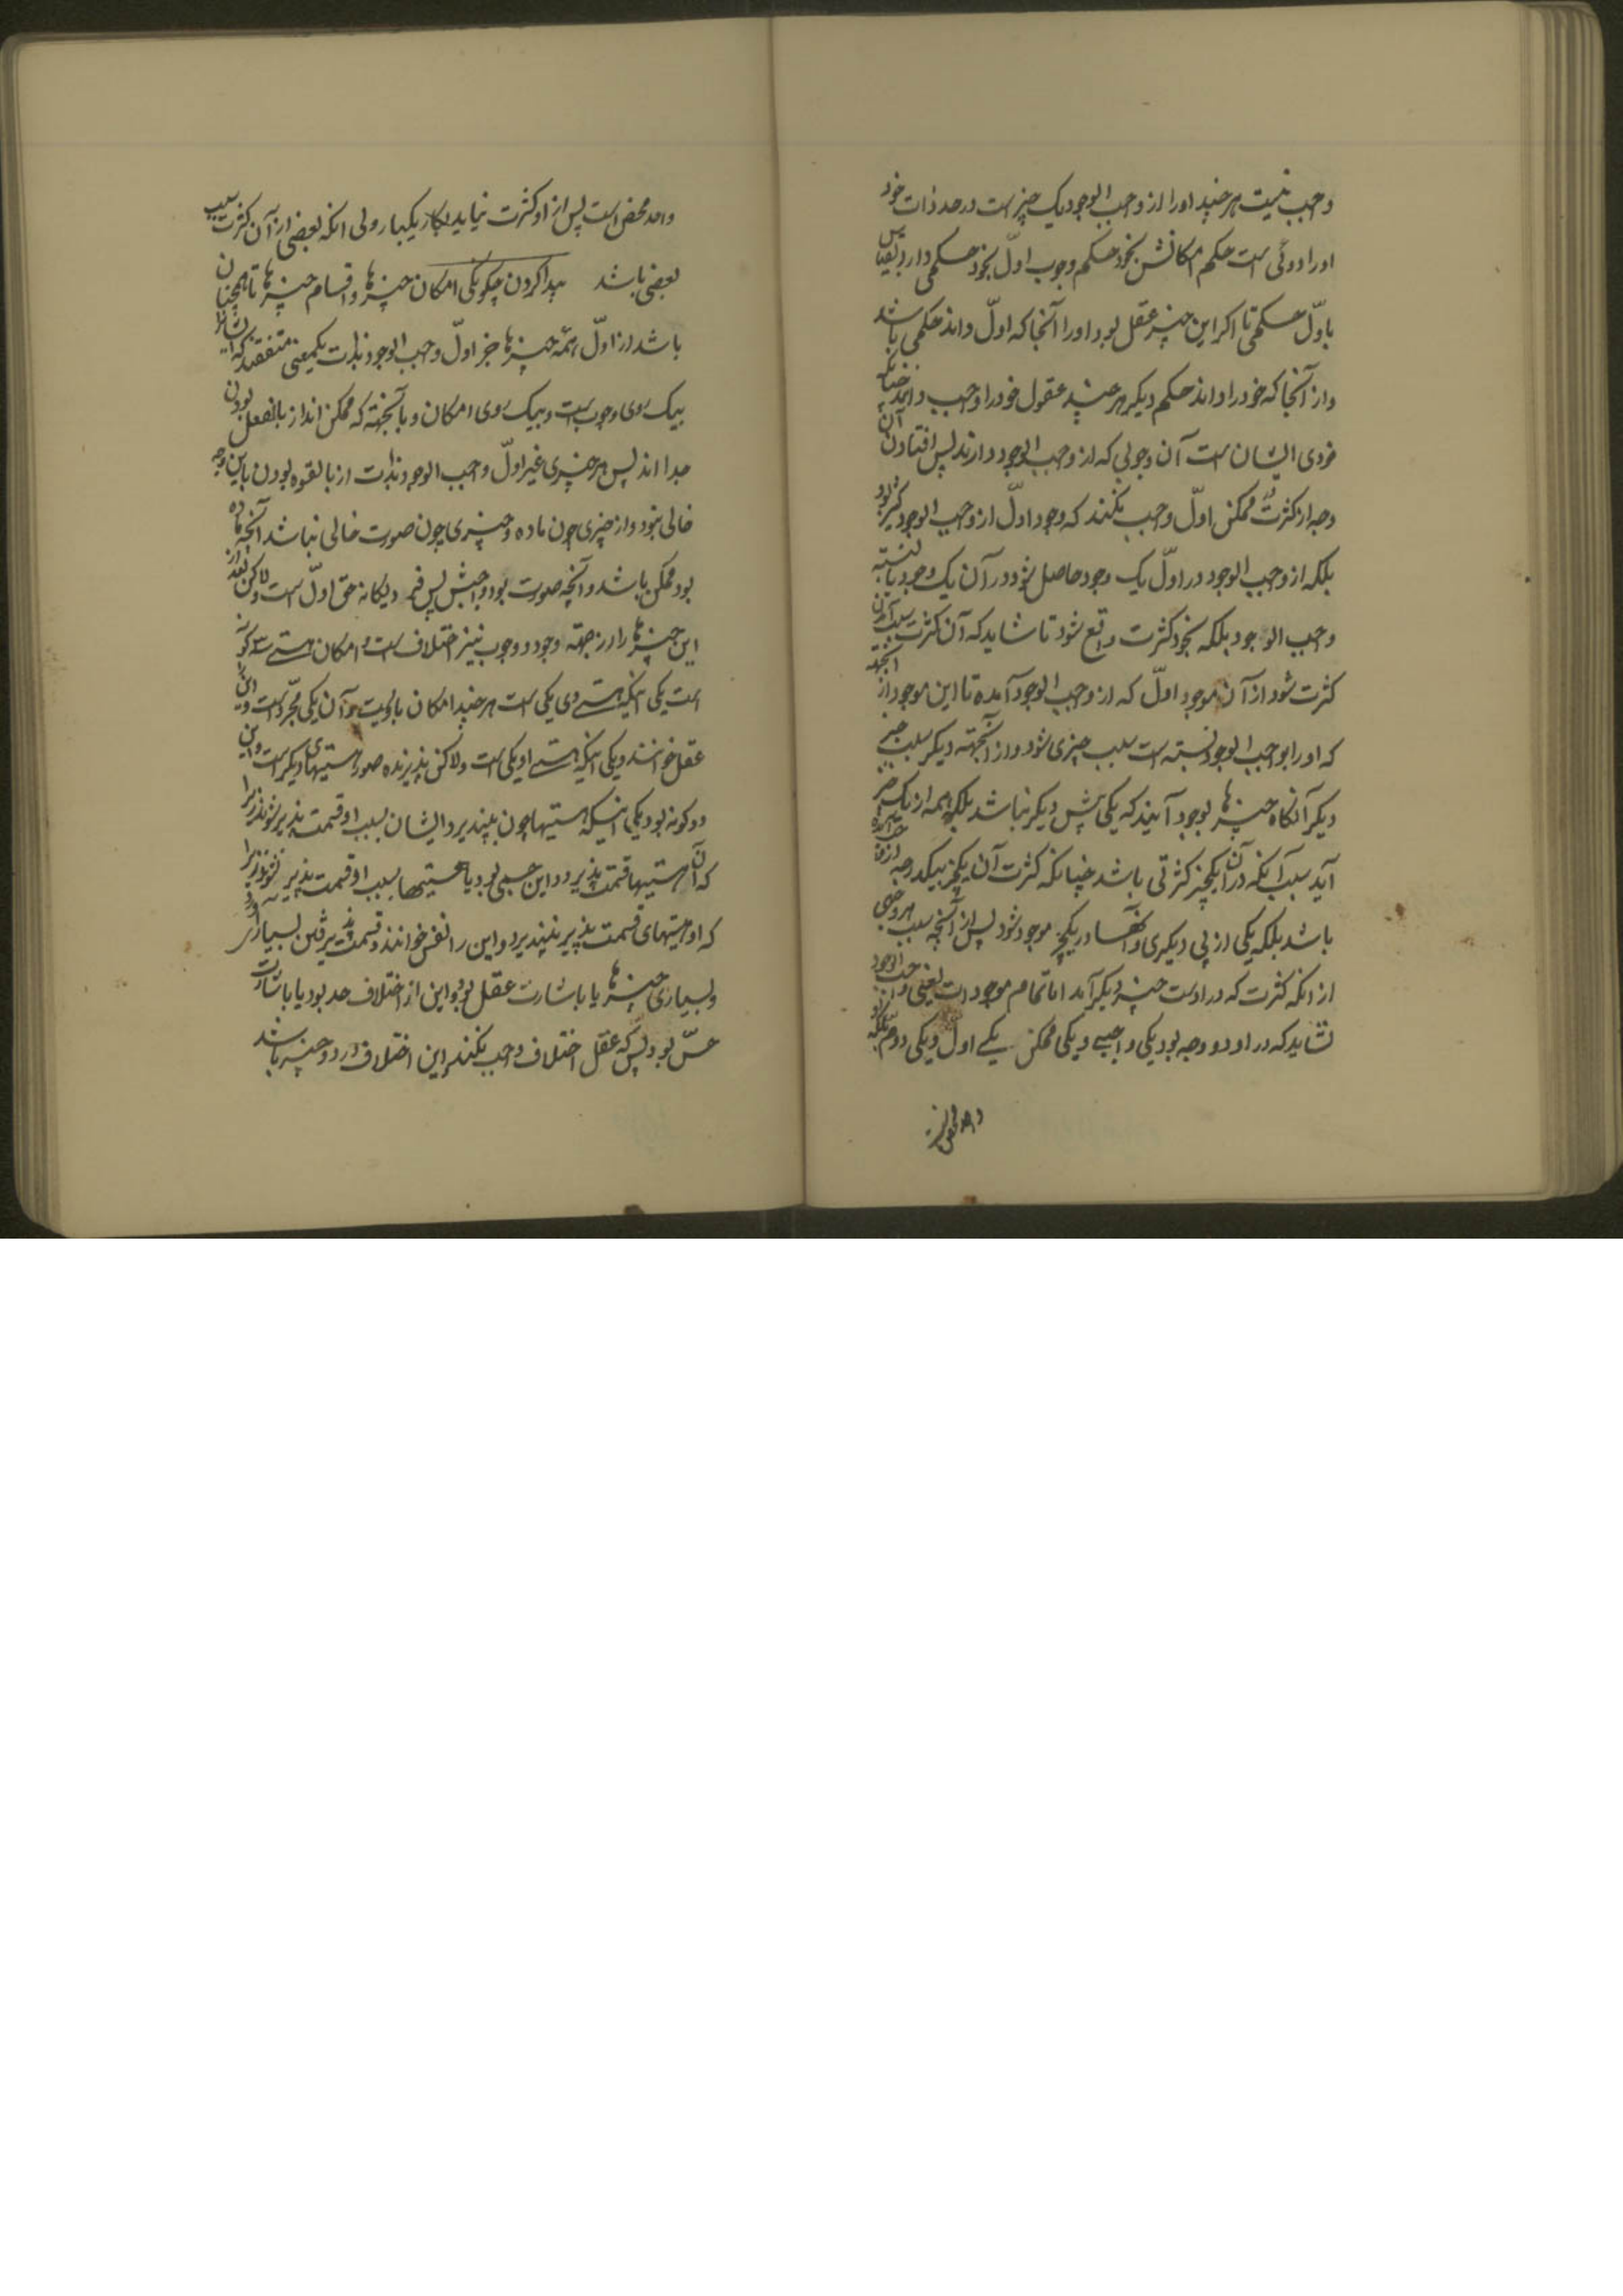 واجب نیست هر چند او را از واجب الوجود یک چیز است در حد ذات خود
او را دوئی است حکم امکانش بخود حکم وجوب اول بخود حکمی دارد بقیاس
باول حکمی تا اگر این چیز عقل بود او را آنجا که اول داند حکمی باشد
و از آنجا که خود را داند حکم دیگر هر چند عقول خود را واجب دانند چنانکه
خردی ایشان است آن وجوبی که از واجب الوجود دارند پس افتادن آن
وجه از کثرت ممکن اول واجب نکند که وجود اول از واجب الوجود کثیر بود
بلکه از واجب الوجود در اول یک وجود حاصل شود و در آن یک وجود بآنسبته
واجب الوجود بلکه بخود کثرت واقع شود تا شاید که آن کثرت سبب آمدن
کثرت شود از آن موجود اول که از واجب الوجود آمده تا این موجود از آنجهته
که او را بواجب الوجود نسبته است سبب چیزی شود و از آنجهته دیگر سبب چیز
دیگر آنگاه چیزها بوجود آیند که یکی پیش دیگر نباشد بلکه همه از یک چیز
آید بسبب آنکه در آن یکچیز کثرتی باشد چنانکه کثرت آن یکچیز بیکدرجه
باشد بلکه یکی از پی دیگری و آنها در یکچیز موجود شود پس از آنچه سبب هر وجهی
از آنکه کثرت که در اوست چیز دیگر آمد اما تمام موجودات یعنی واجب الوجود
نشاید که در او دو وجه بود یکی واجبی و یکی ممکن یکی اول و یکی دوم بلکه او
واحد محض است
واحد محض است پس از او کثرت نیاید بکار یکبار ولی آنکه بعضی از آن کثرت سبب
بعضی باشد پیدا کردن چگونگی امکان چیزها و اقسام چیزها تا همچنان
باشد از اول همه چیزها جز اول واجب الوجود بذات بیکمعنی متفقند که ایشانرا
بیک روی وجوب است و بیک روی امکان و بآنجهته که ممکن‌اند از بالفعل بودن
جدا اند پس هر چیزی غیر اول واجب الوجود بذات از بالقوه بودن باین وجه
خالی نبود و از چیزی چون ماده و چیزی چون صورت خالی نباشد آنچه ماده
بود ممکن باشد و آنچه صورت بود واجبش پس فرد و یگانه حق اول است ولاکن بعد از
این چیزها را از جهته وجود و وجوب نیز اختلاف است و امکان هستی سه گونه
است یکی اینکه هستی وی یکی است هر چند امکان باویست و آن یکی مجرد است و این را
عقل خوانند و یکی اینکه هستی او یکی است ولاکن پذیرنده صور هستیهای دیگر است و این
دو گونه بود یکی اینکه هستیها چون بپذیرد ایشان بسبب او قسمت پذیر شوند زیرا
که آن هستیها قسمت پذیرد و این جسمی بود یا هستیها بسبب او قسمت پذیر نشوند زیرا
که او هستیهای قسمت پذیر نپذیرد و این را نفس خوانند و قسمت پذیرفتن بسیاری
و بسیاری چیزها یا باشارت عقل بود و این از اختلاف حد بود یا باشارت
حس بود پس که عقل اختلاف واجب نکند این اختلاف در دو چیز باشد